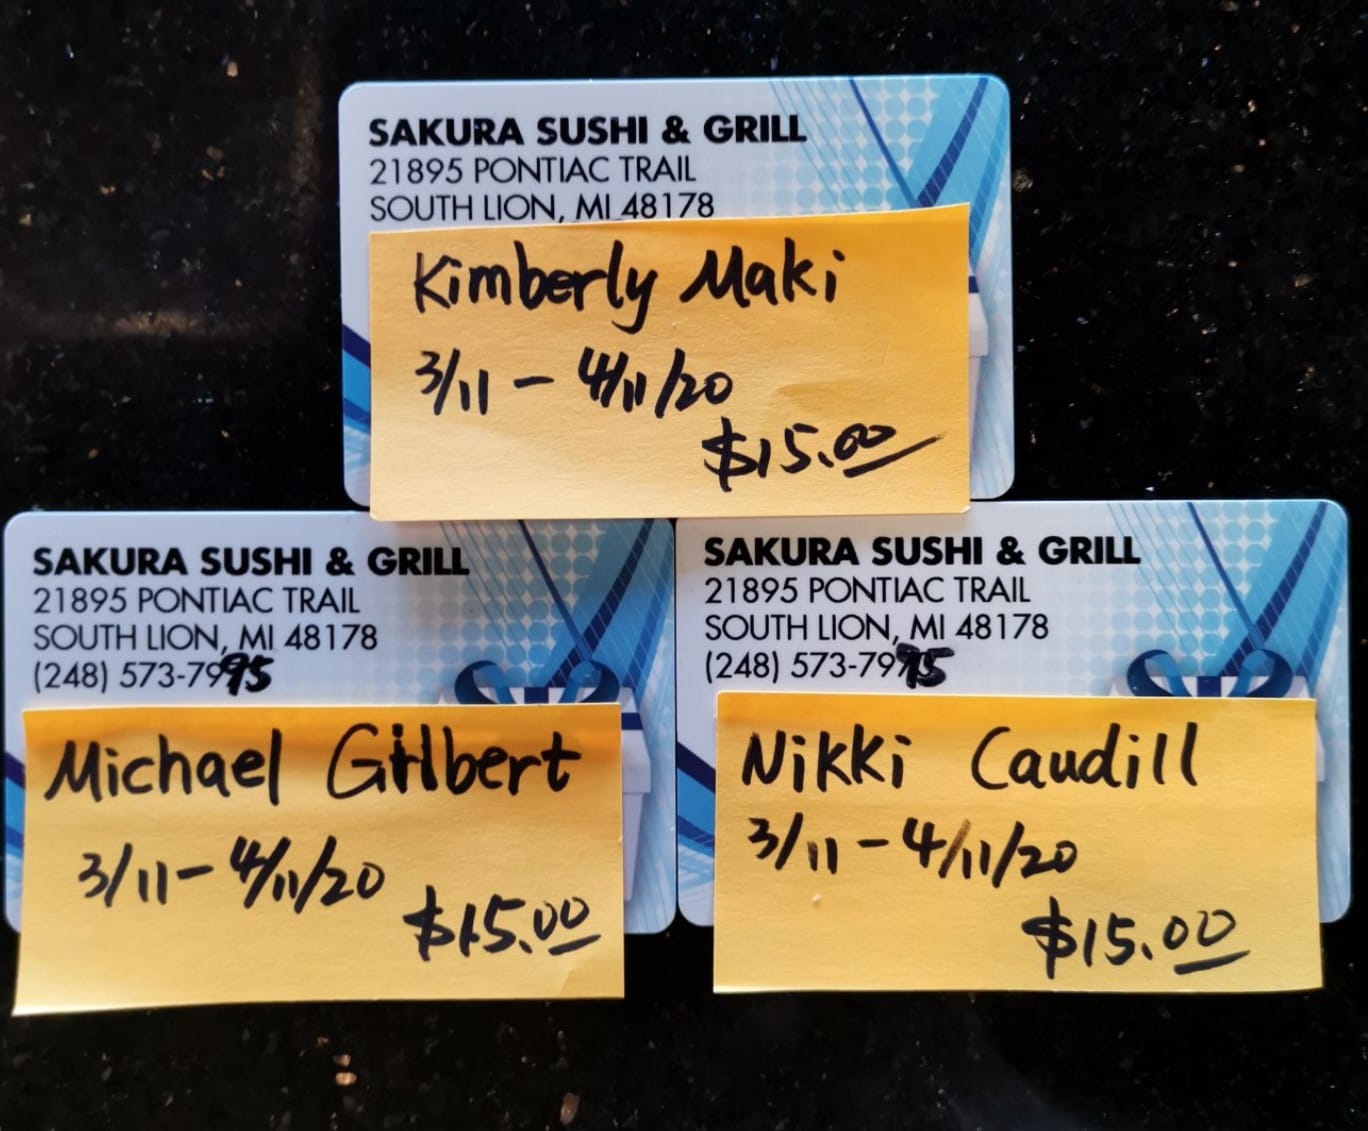 SAKURA SUSHI & GRILL
21895 PONTIAC TRAIL
SOUTH LION, MI 48178
Kimberly Maki
3/11 - 4/11/20
$15.00
SAKURA SUSHI & GRILL
21895 PONTIAC TRAIL
SOUTH LION, MI 48178
(248) 573-7995
Michael Gilbert
3/11 - 4/11/20
$15.00
SAKURA SUSHI & GRILL
21895 PONTIAC TRAIL
SOUTH LION, MI 48178
(248) 573-7995
Nikki Caudill
3/11 - 4/11/20
$15.00